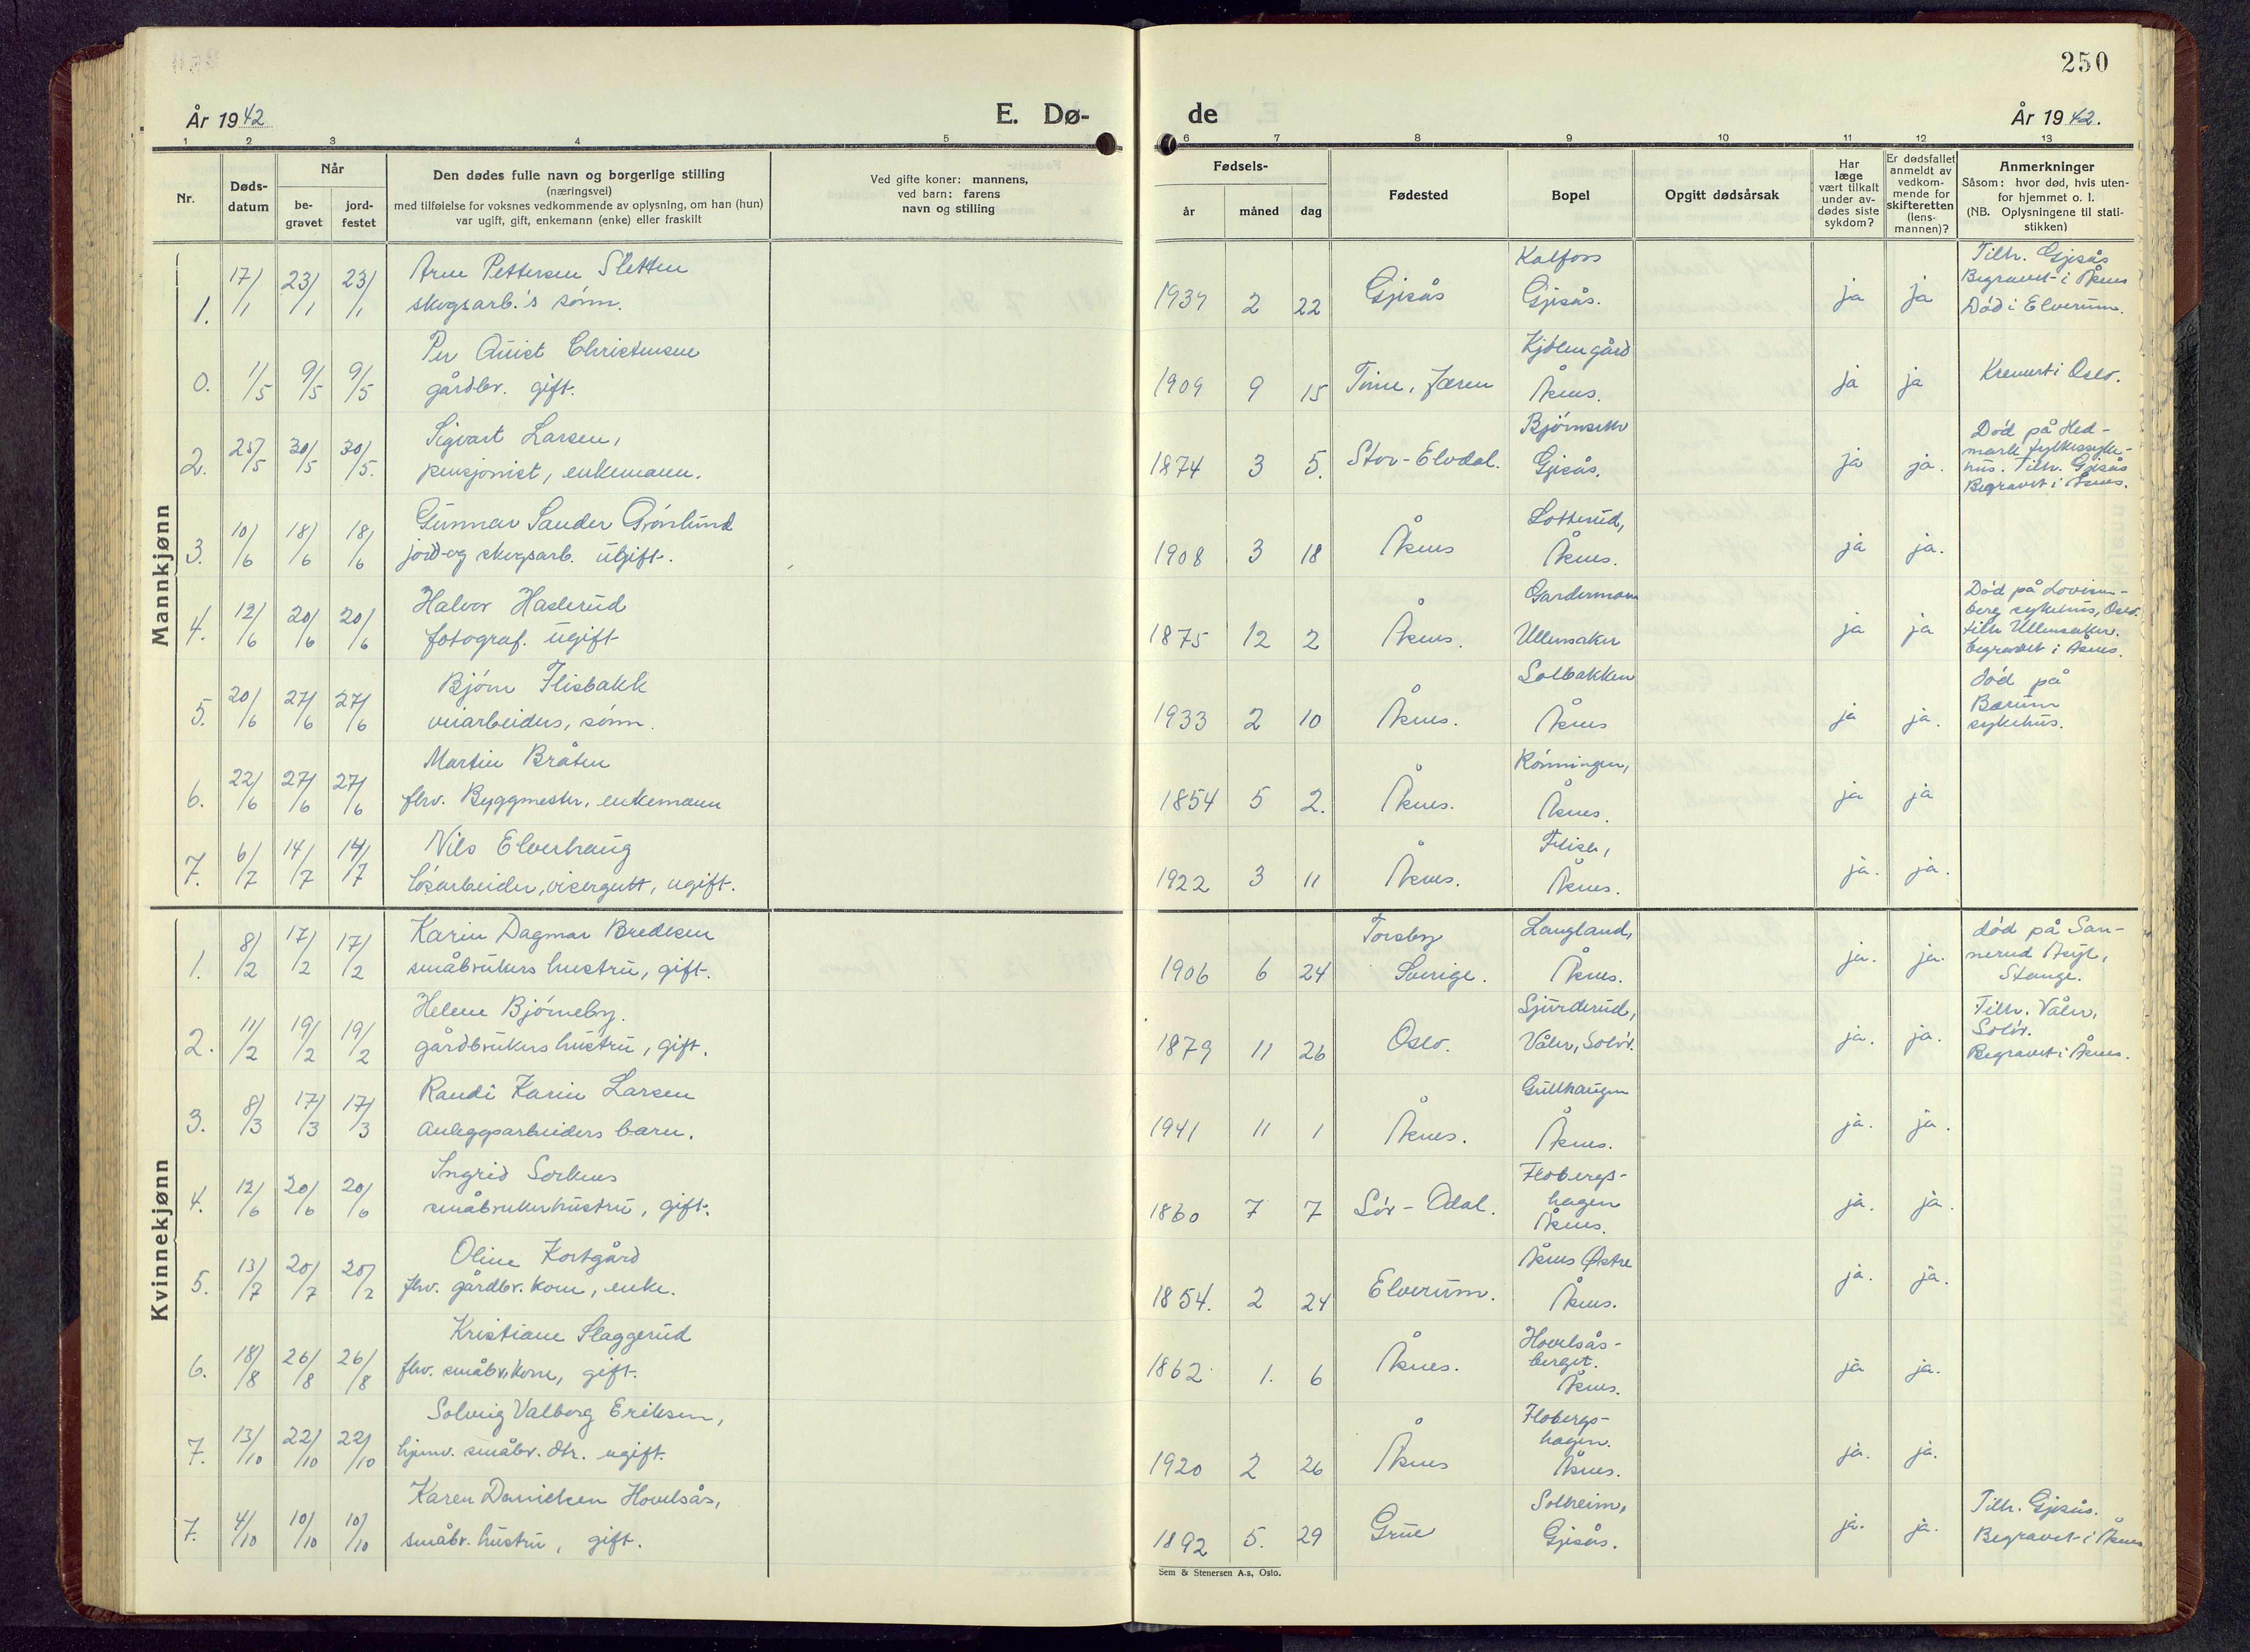 250
År 1942
E. Dø-
de
År 1942.
1 2 3 4 5 6 7 8 9 10 11 12 13
Nr.
Døds-
datum
Når
be-
gravet
jord-
festet
Den dødes fulle navn og borgerlige stilling
(næringsvei)
med tilføielse for voksnes vedkommende av oplysning, om han (hun)
var ugift, gift, enkemann (enke) eller fraskilt
Ved gifte koner: mannens,
ved barn: farens
navn og stilling
Fødsels-
år
måned
dag
Fødested
Bopel
Opgitt dødsårsak
Har
læge
vært tilkalt
under av-
dødes siste
sykdom?
Er dødsfallet
anmeldt av
vedkom-
mende for
skifteretten
(lens-
mannen)?
Anmerkninger
Såsom: hvor død, hvis uten-
for hjemmet o. l.
(NB. Oplysningene til stati-
stikken)
Mannkjønn
1. 17/1 23/1 23/1 Arne Pettersen Sletten
skogsarb.'s sønn.
1939 2 22 Gjesås Kalfoss
Gjesås. ja ja Tilh. Gjesås
Begravet i Åsnes
Død i Elverum.
0. 1/5 9/5 9/5 Per Quist Christensen
gårdbr. gift.
1909 9 15 Time, Jæren Kjølengård
Åsnes. ja ja Kremert i Oslo.
2. 25/5 30/5 30/5. Sigvart Larsen,
pensjonist, enkemann.
1874 3 5. Stor-Elvdal. Bjørnseth
Gjesås. ja ja. Død på Hed-
mark fylkessyke-
hus. Tilh. Gjesås
Begravet i Åsnes.
3. 10/6 18/6 18/6 Gunnar Sander Grønlund
jord-og skogsarb. ugift.
1908 3 18 Åsnes Lotterud,
Åsnes. ja ja.
4. 12/6 20/6 20/6 Halvor Haslerud
fotograf. ugift
1875 12 2 Åsnes. Gardermoen
Ullensaker ja ja Død på Lovisen-
berg sykehus, Oslo.
tilh Ullensaker.
begravet i Åsnes.
5. 20/6 27/6 27/6 Bjørn Flisbakk
veiarbeiders, sønn.
1933 2 10 Åsnes. Solbakken
Åsnes ja ja. død på
Bærum
sykehus.
6. 22/6 27/6 27/6 Martin Bråten
fhv. Byggmester, enkemann
1854 5 2. Åsnes. Rønningen,
Åsnes. ja ja
7. 6/7 14/7 14/7 Nils Elverhaug
løsarbeider, visergutt, ugift.
1922 3 11 Åsnes. Flisa,
Åsnes. ja. ja.
Kvinnekjønn
1. 8/2 17/2 17/2 Karin Dagmar Bredesen
småbrukers hustru, gift.
1906 6 24 Torsby
Sverige. Langland,
Åsnes. ja. ja. død på San-
nerud Asyl,
Stange.
2. 11/2 19/2 19/2 Helene Bjørneby.
gårdbrukers hustru, gift.
1879 11 26 Oslo. Sjurderud,
Våler, Solør. ja. ja. Tilh. Våler,
Solør.
Begravet i Åsnes.
3. 8/3 17/3 17/3 Randi Karin Larsen
Anleggsarbeiders barn.
1941 11 1 Åsnes. Gullhaugen
Åsnes. ja. ja.
4. 12/6 20/6 20/6 Ingrid Sorknes
småbrukerhustru, gift.
1860 7 7 Sør-Odal. Flobergs-
hagen
Åsnes. ja. ja.
5. 13/7 20/7 20/2 Oline Kortgård
fhv. gårdbr. kone, enke.
1854. 2 24 Elverum. Åsnes Østre
Åsnes. ja. ja.
6. 18/8 26/8 26/8 Kristiane Slaggerud
fhv. småbr. kone, gift.
1862 1. 6 Åsnes. Hovelsås-
berget.
Åsnes. ja ja.
7. 13/10 22/10 22/10 Solveig Valborg Eriksen,
hjemv. småbr. dtr. ugift.
1920 2 26 Åsnes Flobergs-
hagen.
Åsnes. ja. ja.
7. 4/10 10/10 10/10 Karen Danielsen Hovelsås,
småbr. hustru, gift.
1892 5. 29 Grue Solheim,
Gjesås. ja. ja. Tilh. Gjesås.
Begravet i Åsnes
Sem & Stenersen A.s, Oslo.